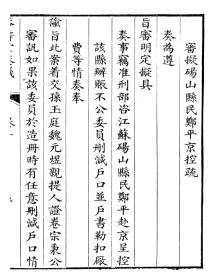 審擬碭山縣民鄭平京控疏
奏為遵
旨審明定擬具
奏事竊准刑部咨江蘇碭山縣民鄭平赴京呈控
該縣辦賑不公委員刪減戶口並戶書勒扣廠
費等情奏奉
諭旨此案着交孫玉庭魏元煜親提人證卷宗秉公
審訊如果該委員於造冊時有任意刪減戶口情